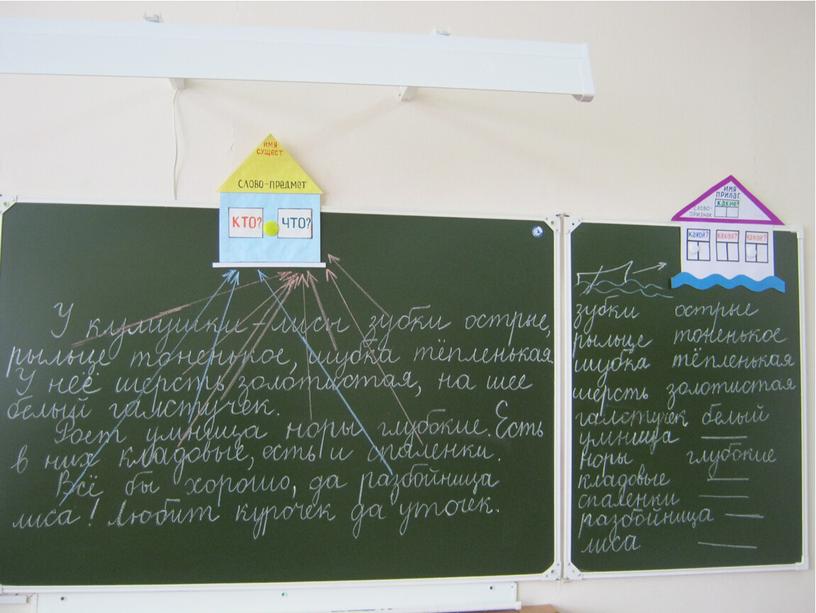 ИМЯ
СУЩЕСТ
СЛОВО-ПРЕДМЕТ
КТО? ЧТО?
У кумушки-лисы зубки острые,
рыльце тоненькое, шубка тёпленькая
У неё шерсть золотистая, на шее
белый галстучек.
Роет умница норы глубокие. Есть
в них кладовые, есть и спаленки.
Всё бы хорошо, да разбойница
лиса! Любит курочек да уточек.
ИМЯ
ПРИЛАГ.
КАКИЕ?
СЛОВО-
ПРИЗНАК
КАКОЙ? КАКАЯ? КАКОЕ?
зубки острые
рыльце тоненькое
шубка тёпленькая
шерсть золотистая
галстучек белый
умница
норы глубокие
кладовые
спаленки
разбойница
лиса